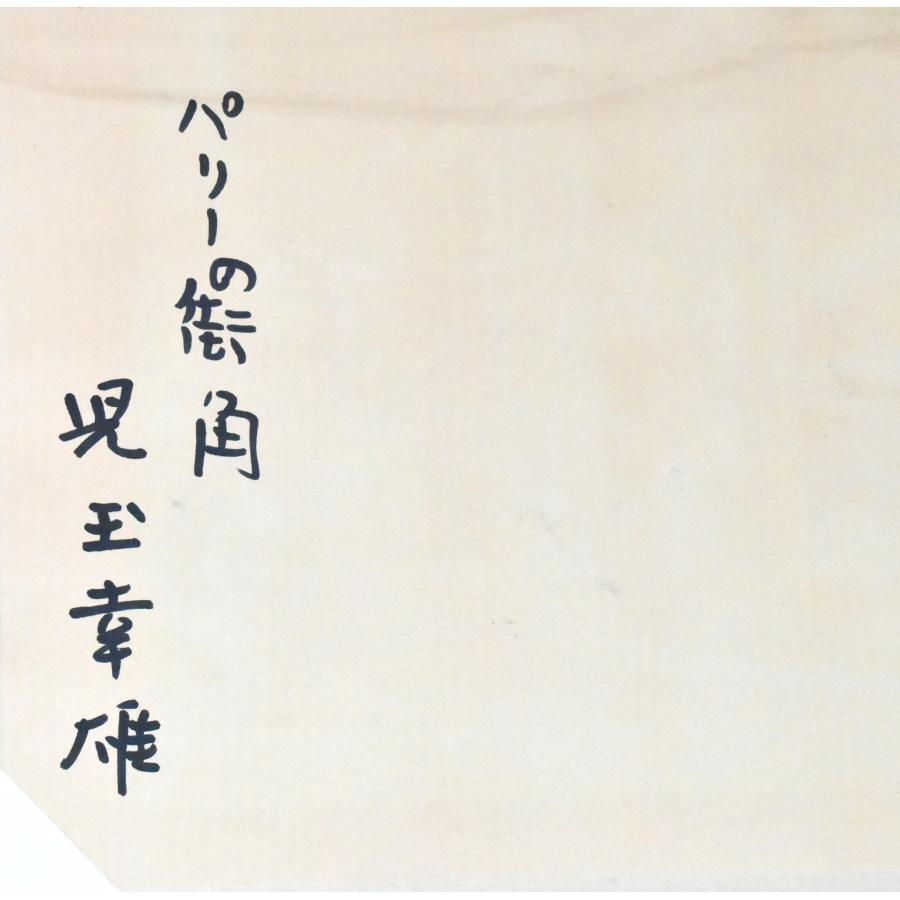 パリーの街角
児玉幸雄